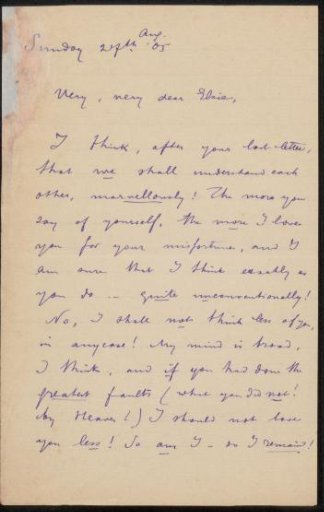 Aug.
Sunday 27th '05
Very, very dear Elsie,
I think, after your last letter,
that we shall understand each
other, marvellously! The more you
say of yourself, the more I love
you for your misfortune, and I
am sure that I think exactly as
you do — quite unconventionally!
No, I shall not think less of you,
in anycase! My mind is broad,
I think, and if you had done the
greatest faults (what you did not!
by Heaven!) I should not love
you less! So am I — so I remain!